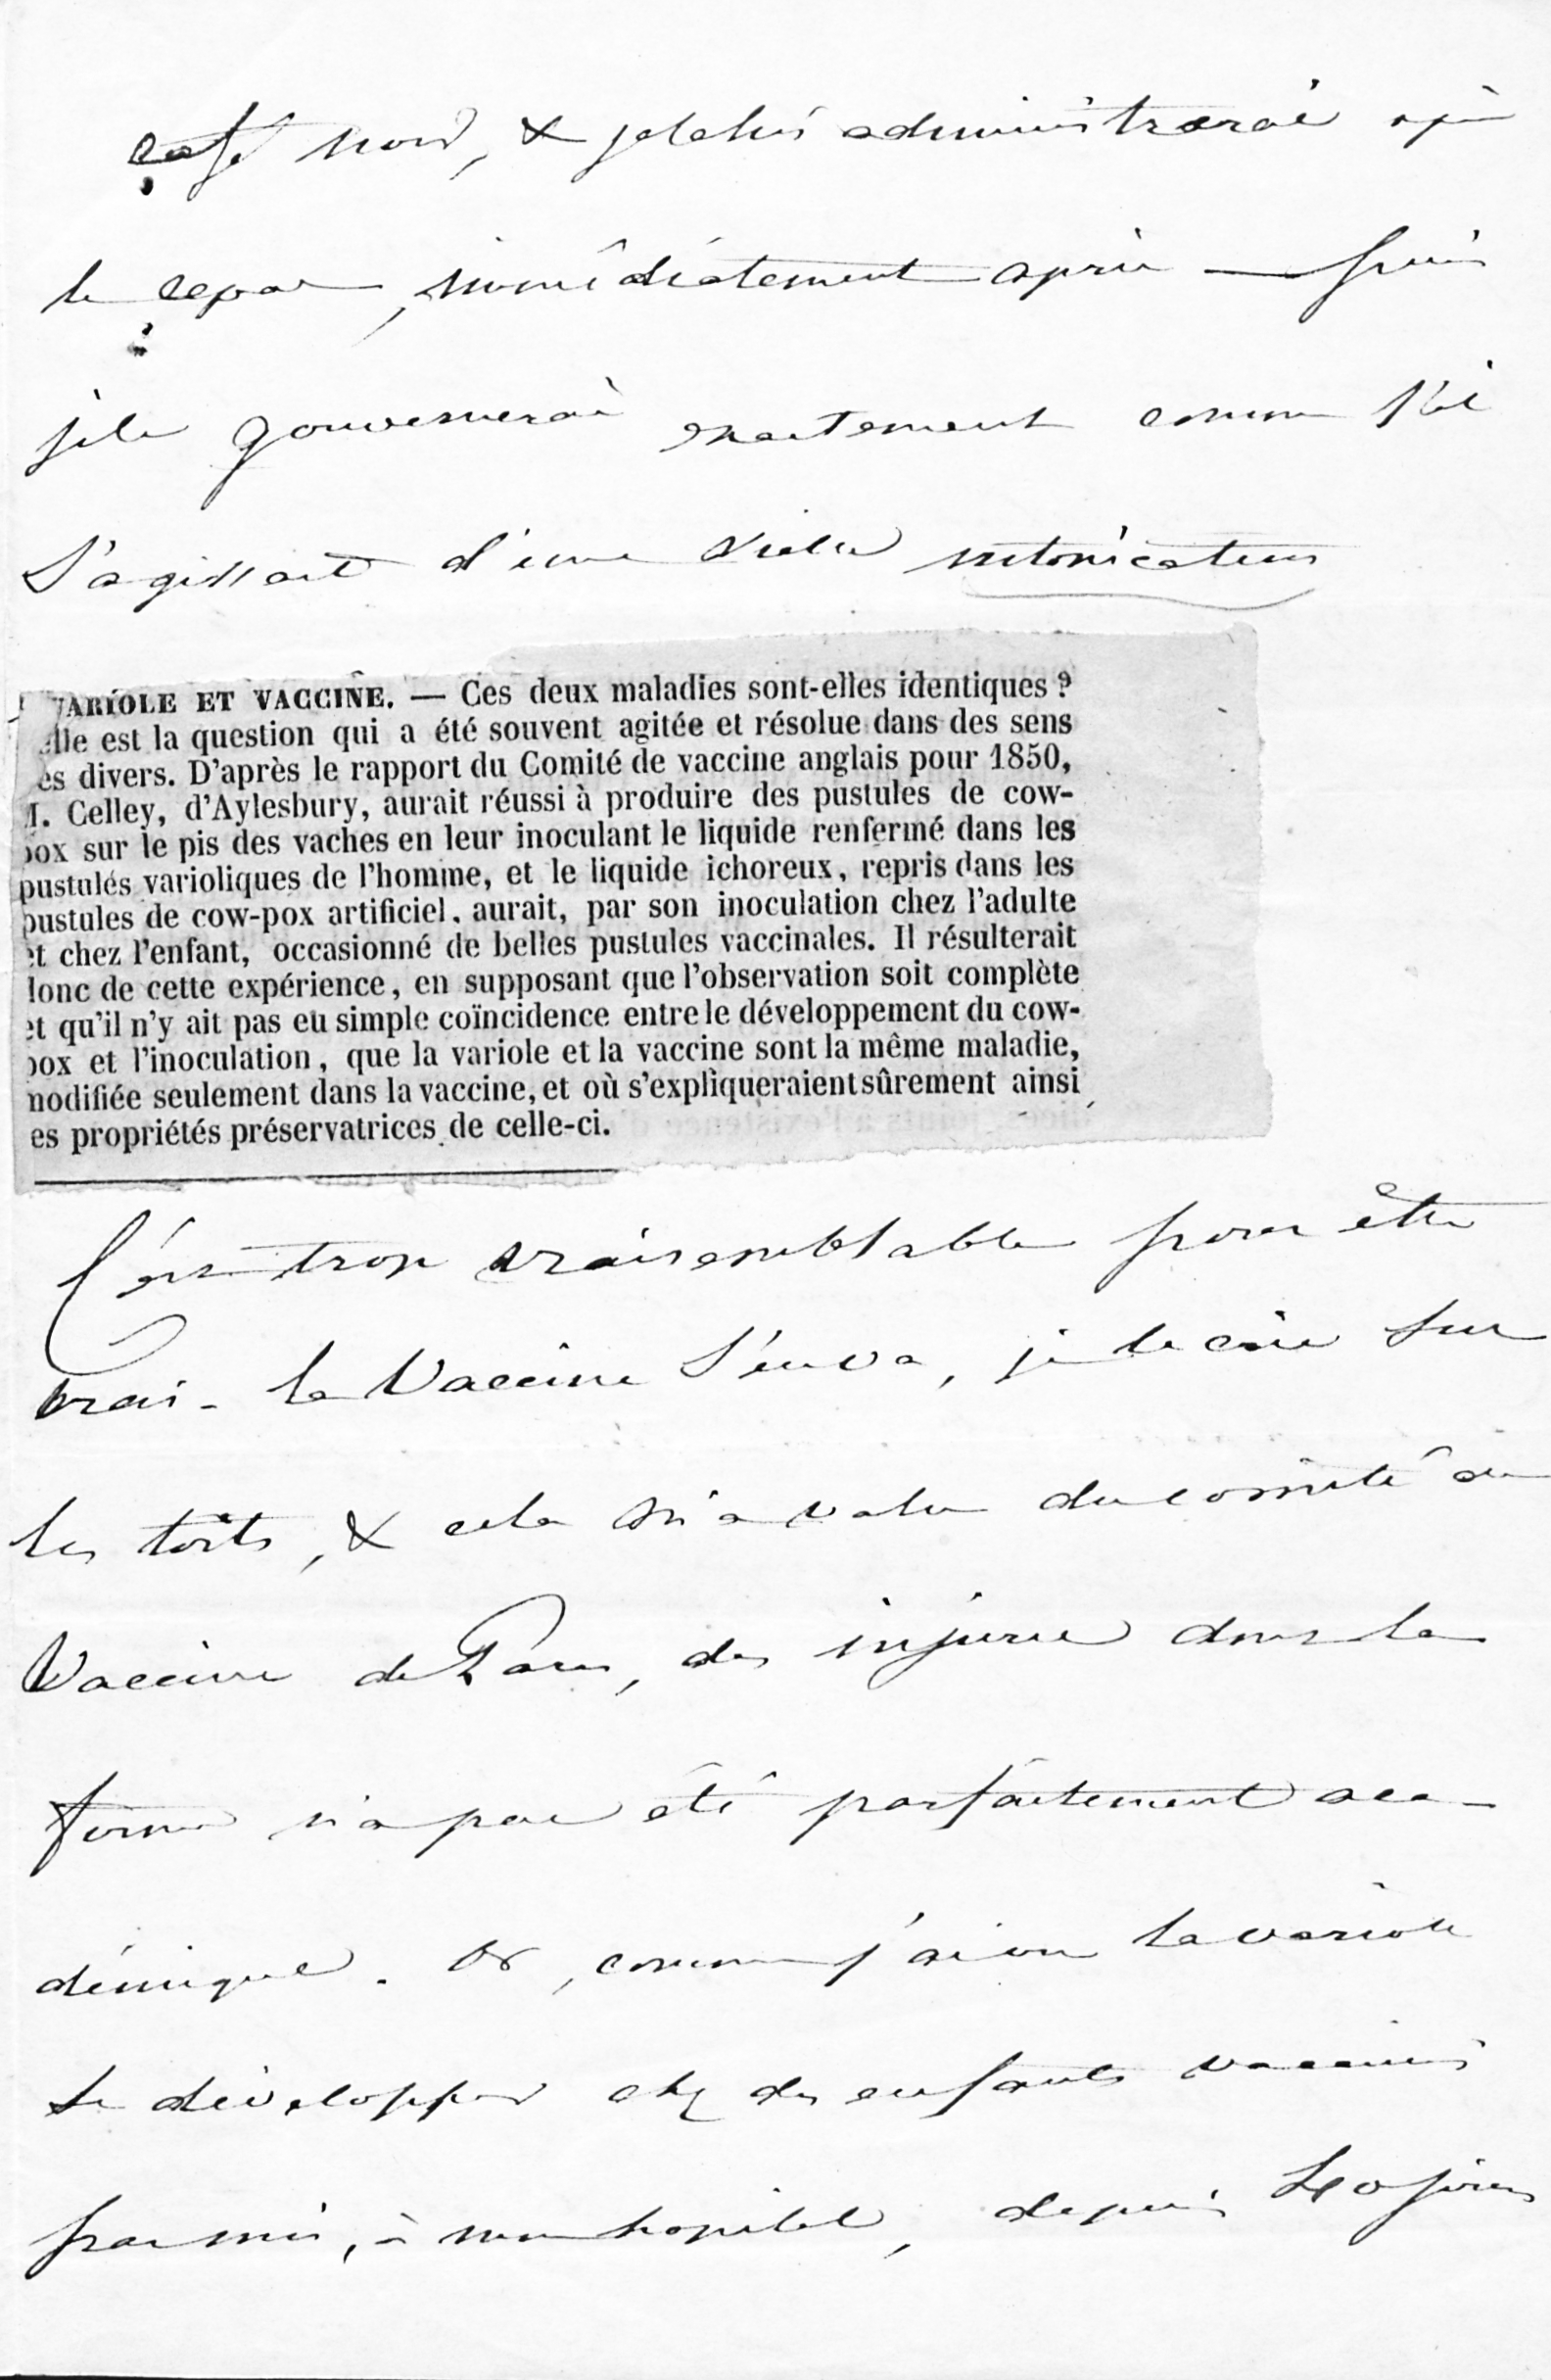 café noir, & je le lui administrerai après
le repas, immédiatement après — puis
je le gouvernerai exactement comme s'il
s'agissait d'une intoxication
VARIOLE ET VACCINE. — Ces deux maladies sont-elles identiques?
elle est la question qui a été souvent agitée et résolue dans des sens
ès divers. D'après le rapport du Comité de vaccine anglais pour 1850,
M. Celley, d'Aylesbury, aurait réussi à produire des pustules de cow-
pox sur le pis des vaches en leur inoculant le liquide renfermé dans les
pustules varioliques de l'homme, et le liquide ichoreux, repris dans les
pustules de cow-pox artificiel, aurait, par son inoculation chez l'adulte
et chez l'enfant, occasionné de belles pustules vaccinales. Il résulterait
donc de cette expérience, en supposant que l'observation soit complète
et qu'il n'y ait pas eu simple coïncidence entre le développement du cow-
pox et l'inoculation, que la variole et la vaccine sont la même maladie,
modifiée seulement dans la vaccine, et où s'expliqueraient sûrement ainsi
es propriétés préservatrices de celle-ci.
C'est trop vraisemblable pour être
vrai - la Vaccine s'en va, je le crie sur
les toits, & cela m'a valu du comité de
Vaccine de Paris, des injures dont la
forme n'a pas été parfaitement aca-
démique. Or, comme j'ai vu la variole
se développer chez des enfants vaccinés
par moi, à mon hopital, depuis jours